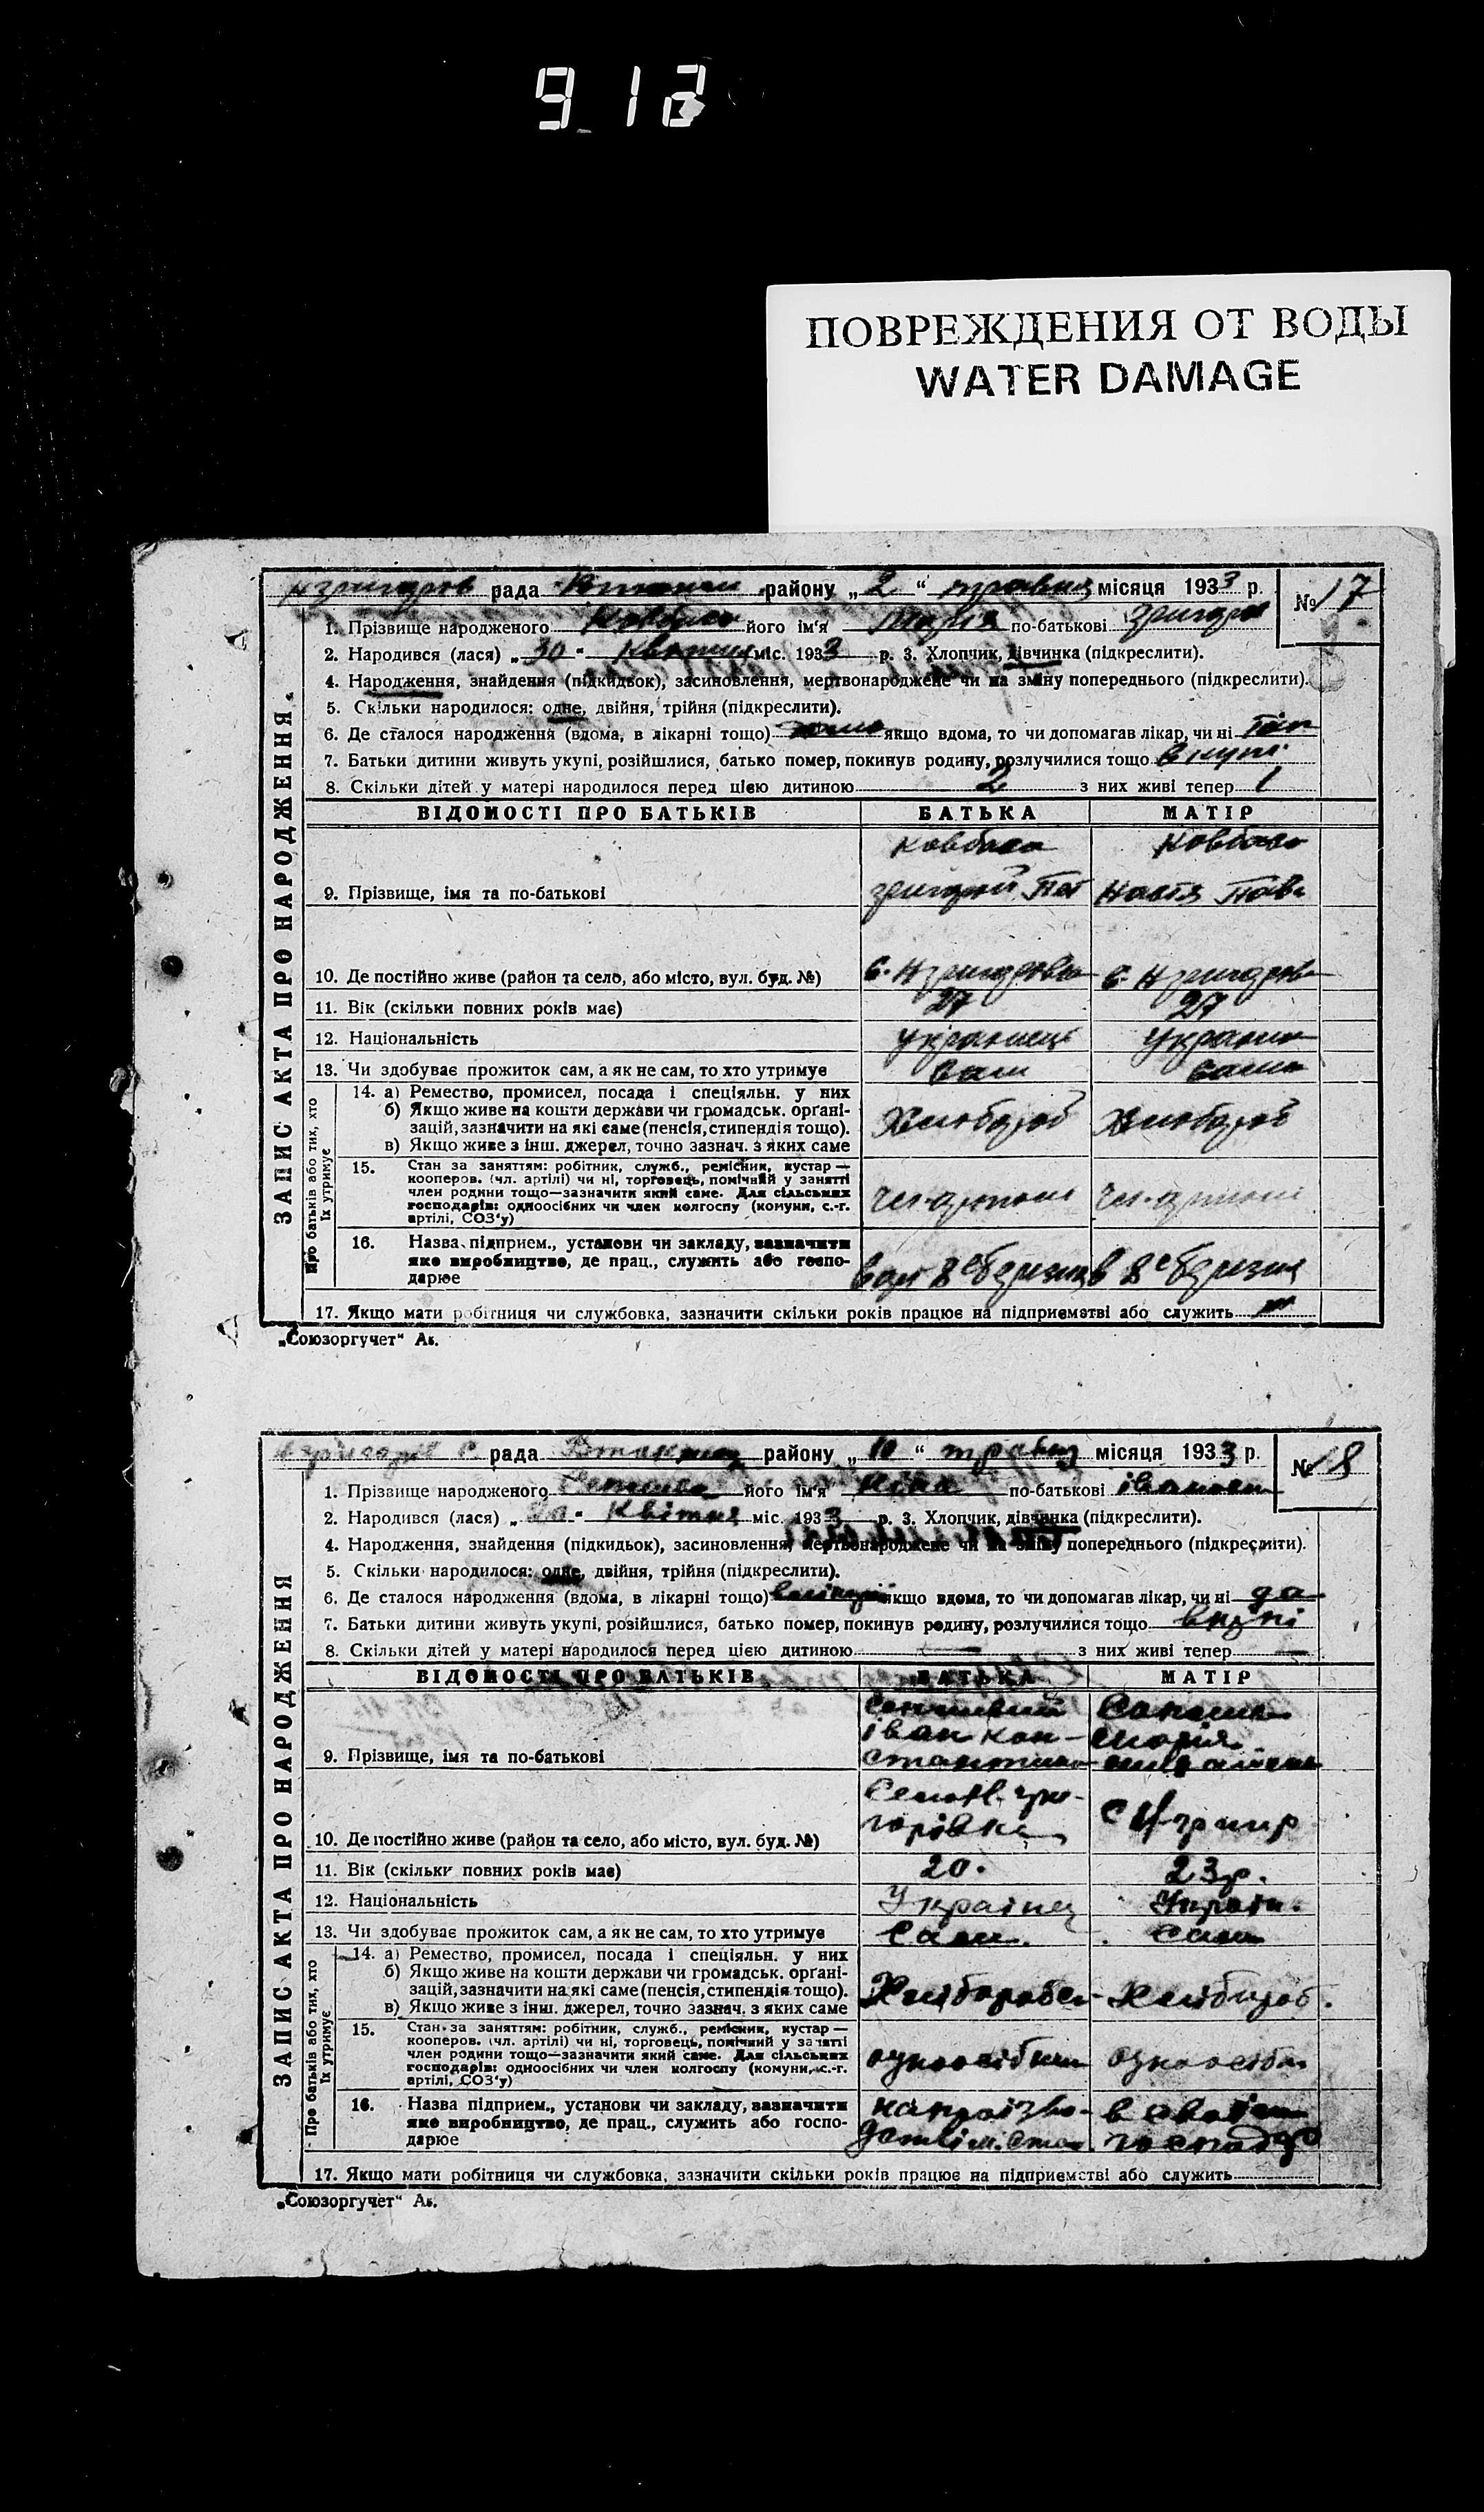 913
ПОВРЕЖДЕНИЯ ОТ ВОДЫ
WATER DAMAGE
рада району „ 2 “ травня місяця 1933 р. № 17
1. Прізвище народженого Ковбаса його ім'я Марія по-батькові Григоро
2. Народився (лася) „ 30 “ Квітня міс. 1933 р. 3. Хлопчик, дівчинка (підкреслити).
4. Народження, знайдення (підкидьок), засиновлення, мертвонароджене чи на зміну попереднього (підкреслити).
5. Скільки народилося: одне, двійня, трійня (підкреслити).
6. Де сталося народження (вдома, в лікарні тощо) якщо вдома, то чи допомагав лікар, чи ні
7. Батьки дитини живуть укупі, розійшлися, батько помер, покинув родину, розлучилися тощо вкупі
8. Скільки дітей у матері народилося перед цією дитиною 2 з них живі тепер 1
ЗАПИС АКТА ПРО НАРОДЖЕННЯ
ВІДОМОСТІ ПРО БАТЬКІВ БАТЬКА МАТІР
Ковбаса Ковбаса
9. Прізвище, імя та по-батькові Григорій Пет Настя Павл
10. Де постійно живе (район та село, або місто, вул. буд. №) с. Нгригорівка с. Нгригорів
11. Вік (скільки повних років має) 27 27
12. Національність Українець Українка
13. Чи здобуває прожиток сам, а як не сам, то хто утримує сам сама
Про батьків або тих, хто їх утримує
14. а) Ремество, промисел, посада і спеціяльн. у них
б) Якщо живе на кошти держави чи громадськ. орґані-
зацій, зазначити на які саме (пенсія, стипендія тощо). Хлібороб Хлібороб
в) Якщо живе з інш. джерел, точно зазнач. з яких саме
15. Стан за заняттям: робітник, служб., ремісник, кустар —
кооперов. (чл. артілі) чи ні, торговець, помічний у занятті
член родини тощо—зазначити який саме. Для сільських
господарів: одноосібних чи член колгоспу (комуни, с.-г.
артілі, СОЗ'у) Чл. артілі Чл. артілі
16. Назва підприєм., установи чи закладу, зазначити
яке виробництво, де прац., служить або госпо-
дарює в арт 8е березня в 8е березня
17. Якщо мати робітниця чи службовка, зазначити скільки років працює на підприємстві або служить
„Союзоргучет“ Ав.
рада району „ 10 “ травня місяця 1933 р. № 18
1. Прізвище народженого його ім'я Ніна по-батькові Івановн
2. Народився (лася) „ 20 “ Квітня міс. 1933 р. 3. Хлопчик, дівчинка (підкреслити).
4. Народження, знайдення (підкидьок), засиновлення, мертвонароджене чи на зміну попереднього (підкреслити).
5. Скільки народилося: одне, двійня, трійня (підкреслити).
6. Де сталося народження (вдома, в лікарні тощо) якщо вдома, то чи допомагав лікар, чи ні да
7. Батьки дитини живуть укупі, розійшлися, батько помер, покинув родину, розлучилися тощо вкупі
8. Скільки дітей у матері народилося перед цією дитиною — з них живі тепер —
ЗАПИС АКТА ПРО НАРОДЖЕННЯ
ВІДОМОСТІ ПРО БАТЬКІВ БАТЬКА МАТІР
Іван Кон- Марія
9. Прізвище, імя та по-батькові стантино
10. Де постійно живе (район та село, або місто, вул. буд. №) горівка с Н-григ
11. Вік (скільки повних років має) 20. 23р.
12. Національність Українец Україн.
13. Чи здобуває прожиток сам, а як не сам, то хто утримує Сам. Сам
Про батьків або тих, хто їх утримує
14. а) Ремество, промисел, посада і спеціяльн. у них
б) Якщо живе на кошти держави чи громадськ. орґані-
зацій, зазначити на які саме (пенсія, стипендія тощо). Хлібороб Хлібороб.
в) Якщо живе з інш. джерел, точно зазнач. з яких саме
15. Стан за заняттям: робітник, служб., ремісник, кустар —
кооперов. (чл. артілі) чи ні, торговець, помічний у занятті
член родини тощо—зазначити який саме. Для сільських
господарів: одноосібних чи член колгоспу (комуни, с.-г.
артілі, СОЗ'у) одноосібник одноосібн
16. Назва підприєм., установи чи закладу, зазначити
яке виробництво, де прац., служить або госпо-
дарює в своїм господар
17. Якщо мати робітниця чи службовка, зазначити скільки років працює на підприємстві або служить
„Союзоргучет“ Ав.